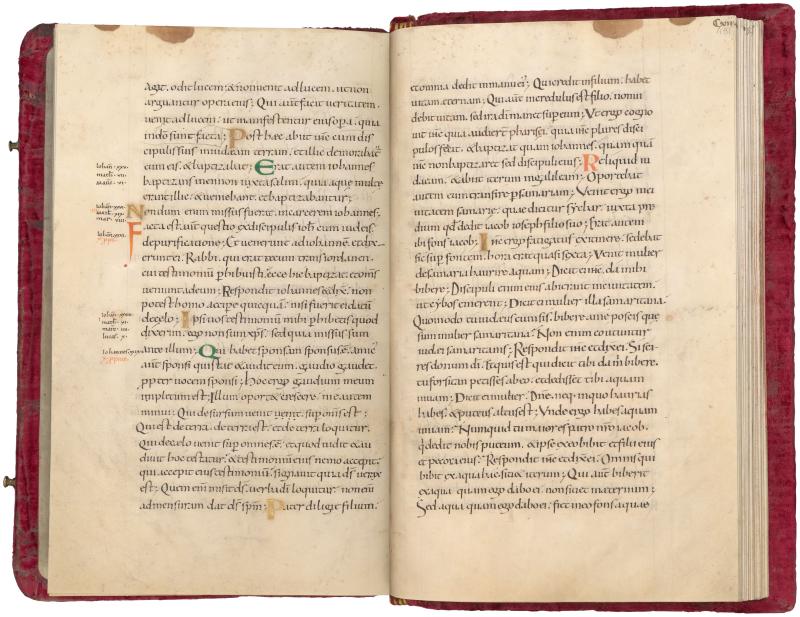 agit. odit lucem. & non uenit ad lucem. ut non
arguantur opera eius; Qui aut facit ueritatem.
uenit ad lucem. ut manifestentur eius opa. quia
in do sunt facta; Post haec abiit ihc cum dis
cipulis suis in iudeam terram. et illic demorabat
cum eis. & baptizabat; Erat autem iohannes
baptizans in ennon iuxta salim. quia aquae multe
erant illic. & ueniebant. et baptizabantur;
Nondum enim missus fuerat in carcerem iohannes.
Facta est aut questio ex discipulis ioh cum iudeis
de purificatione; Et uenerunt ad iohannem. et dixe
runt ei. Rabbi. qui erat tecum trans iordanen.
cui testimoniu phibuisti. ecce hic baptizat. et oms
ueniunt ad eum; Respondit iohannes et dix. non
potest homo accipe quicqua. nisi fuerit ei datu
de celo; Ipsi uos testimoniu mihi phibetis quod
dixerim. ego non sum xps. sed quia missus sum
ante illum; Qui habet sponsam sponsus e. amic
aut sponsi qui stat & audit eum. gaudio gaudet
ppter uocem sponsi; Hoc ergo gaudium meum
impletum est; Illum oport& crescere. me autem
minui; Qui desursum uenit sup oms est;
Qui est de terra. de terra est. et de terra loquitur.
Qui de celo uenit sup omnes e. et quod uidit & au
diuit hoc testatur. & testimoniu eius nemo accepit.
qui accepit eius testimoniu. signauit quia ds uerax
est; Quem eni misit ds. uerba di loquitur. non eni
ad mensuram dat ds spm; Pater diligit filium.
et omnia dedit in manu ei; Qui credit in filium. habet
uitam eternam; Qui aut incredulus est filio. non ui
debit uitam. sed ira di manet sup eum; Ut ergo cogno
uit ihc quia audier pharisei. quia ihc plures disci
pulos facit. & baptizat quam iohannes. quamqua
ihc non baptizaret sed discipuli eius; Reliquid iu
daeam. & abiit iterum in galileam; Oportebat
autem eum transire p samariam; Venit ergo in ci
uitatem samarie. quae dicitur sychar. iuxta pre
dium qd dedit iacob ioseph filio suo; Erat autem
ibi fons iacob; Ihc ergo fatigatus ex itinere. sedebat
sic sup fontem. hora erat quasi sexta; Venit mulier
de samaria haurire aquam; Dicit ei ihc. da mihi
bibere; Discipuli enim eius abierant in ciuitatem.
ut cybos emerent; Dicit ei mulier illa samaritana.
Quomodo tu iudeus cum sis. bibere a me poscis que
sum mulier samaritana; Non enim coutuntur
iudei samaritanis; Respondit ihc et dix ei. Si sci
res donum di. & quis est qui dicit tibi da m bibere.
tu forsitan petisses ab eo. et dedisset tibi aquam
uiuam; Dicit ei mulier. Dne. neq in quo haurias
habes. & puteus altus est; Unde ergo habes aquam
uiuam; Numquid tu maior es patre nro iacob.
q dedit nobis puteum. & ipse ex eo bibit et filii eius
et pecora eius; Respondit ihc et dix ei. Omnis qui
bibit ex aqua hac sitiet iterum; Qui aut biberit
ex aqua quam ego dabo ei. non sitiet in aeternum;
Sed aqua quam ego dabo ei. fiet in eo fons aquae